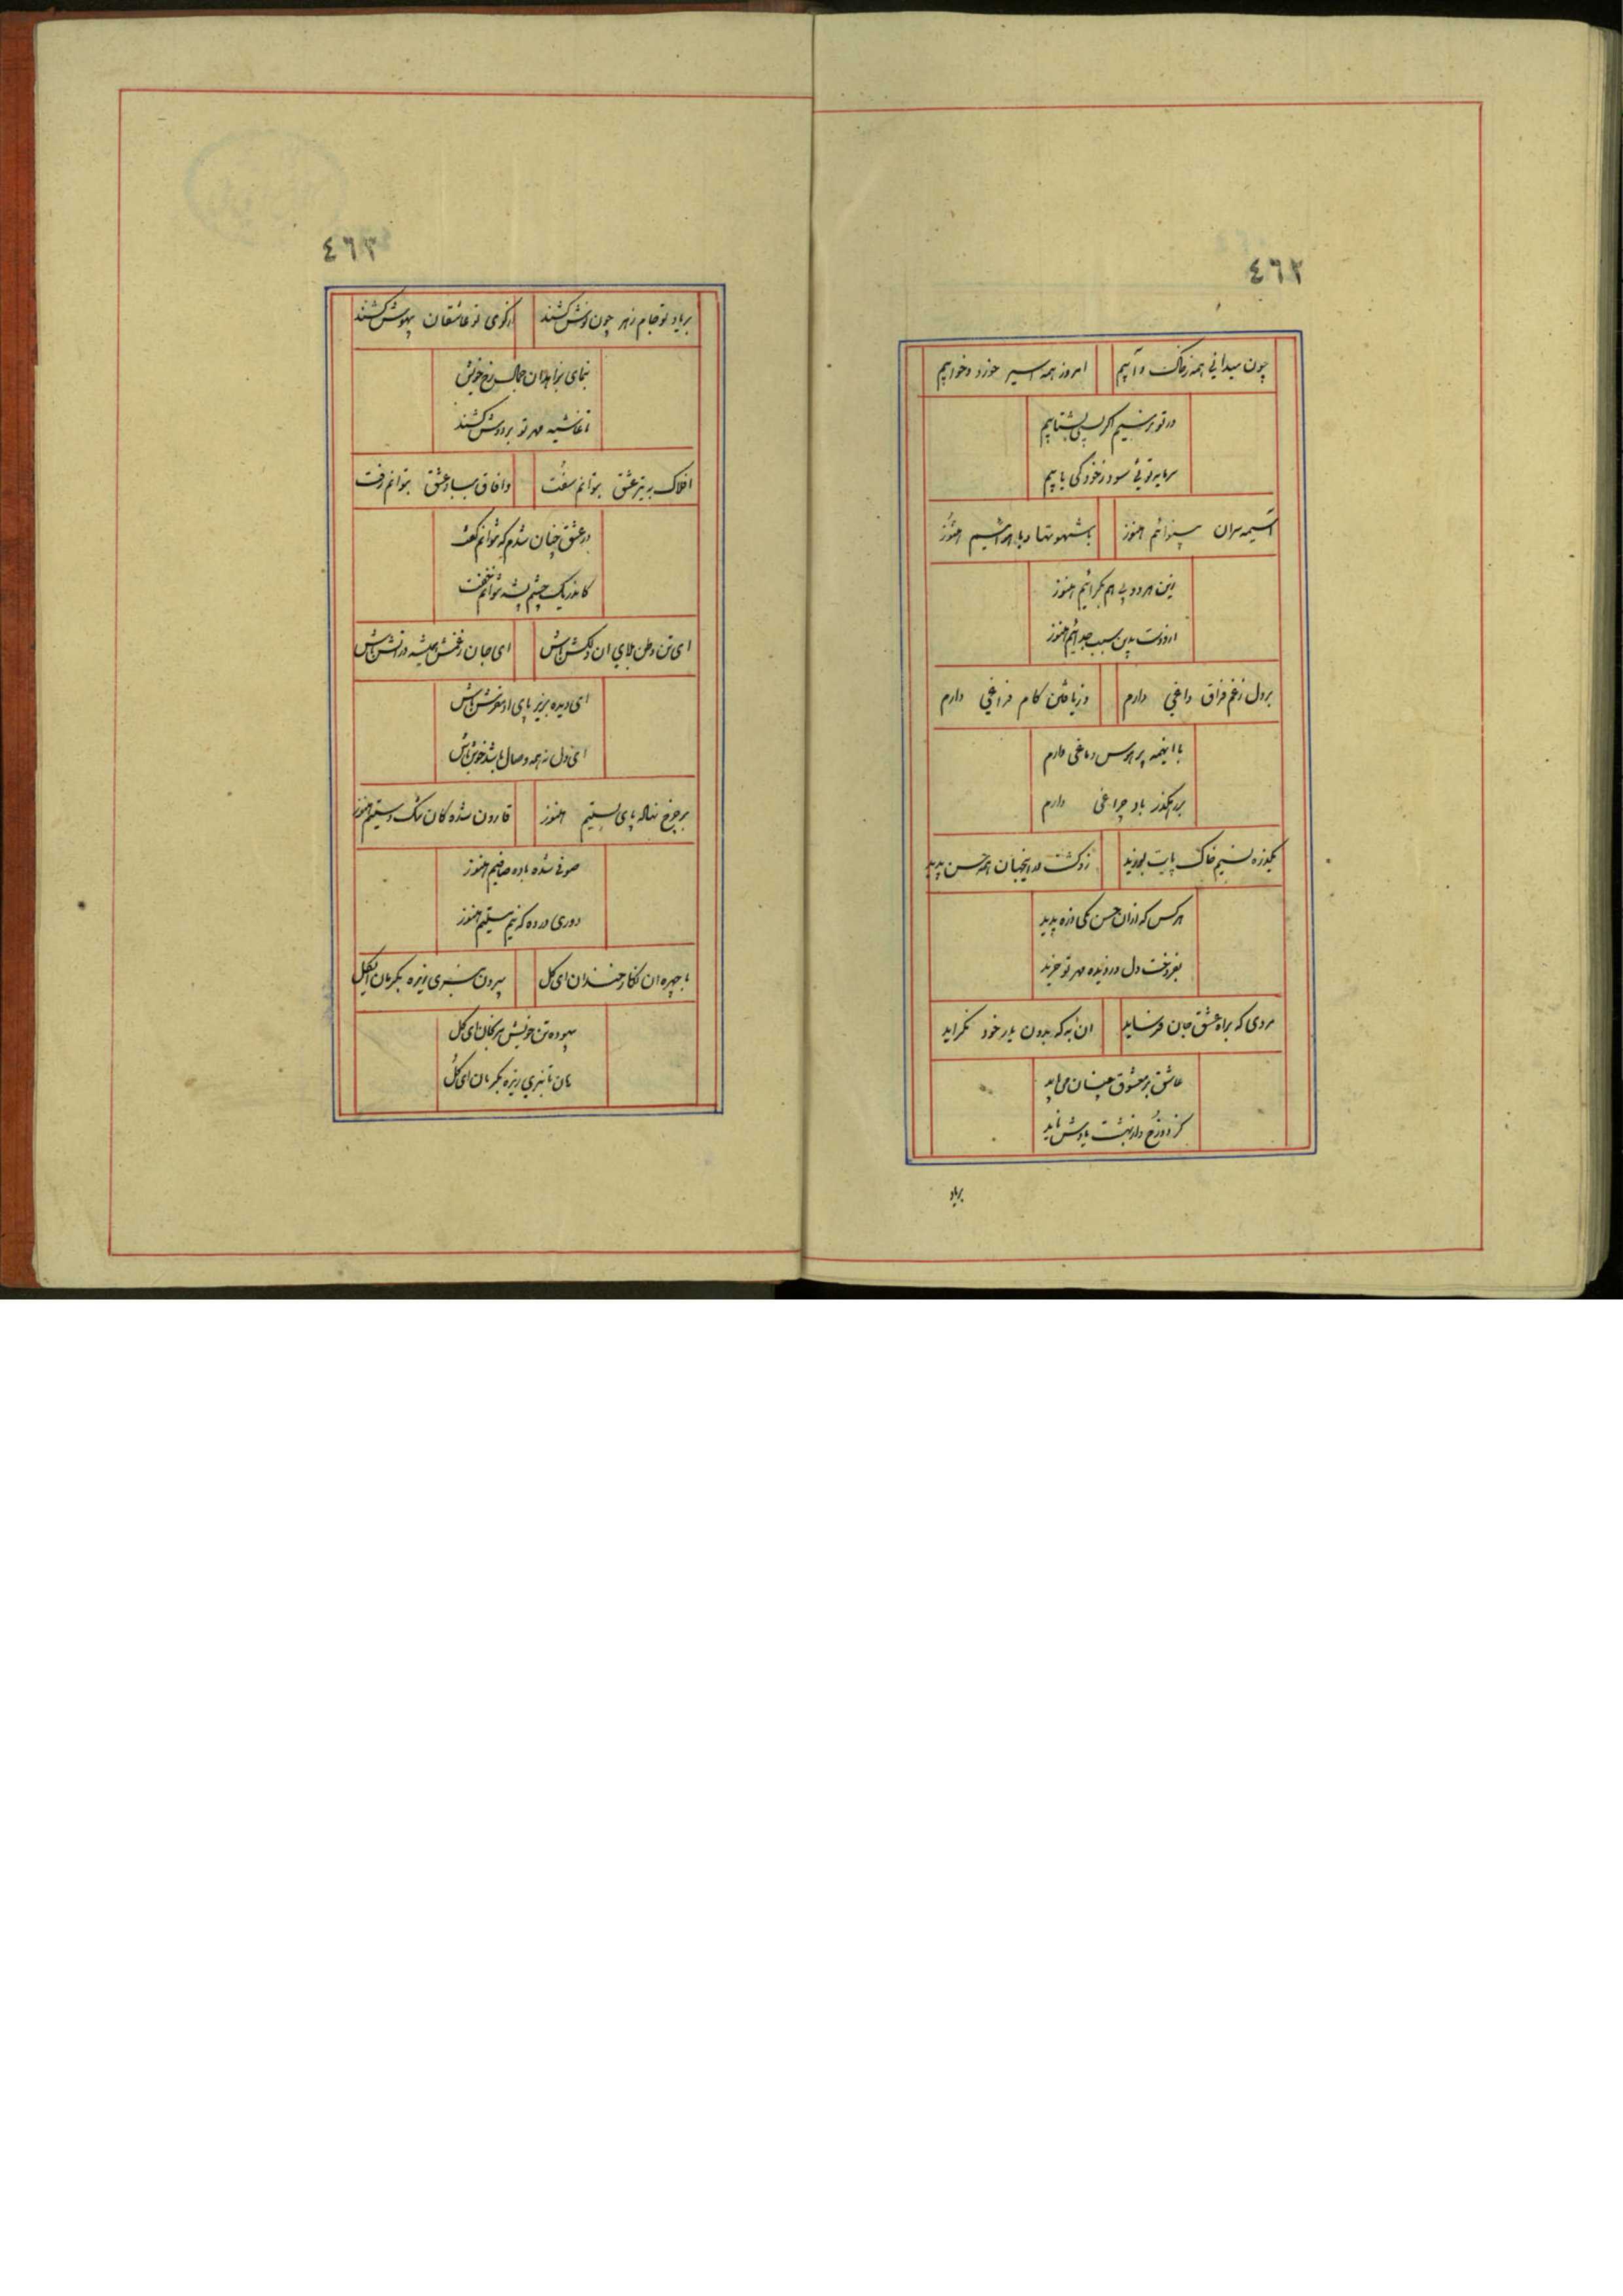 ٤٦٢
چون میدانی همه زخاک و آبیم امروز همه اسیر خورد و خوابیم
در تو نرسیم اگر بسی بشتابیم
سرمایه توئی سود زخود کی یابیم
آسیمه سران بینوائیم هنوز با شهوتها و با هوائیم هنوز
این هر دو پی هم بگرائیم هنوز
از دوست بدین سبب جدائیم هنوز
بر دل زغم فراق داغی دارم وز یافتن کام فراغی دارم
با اینهمه پر هوس دماغی دارم
بر رهگذر باد چراغی دارم
یکذره نسیم خاک پایت بوزید زو گشت در اینجهان همه حسن پدید
هر کس که از ان حسن یکی ذره بدید
بفروخت دل و دیده و مهر تو خرید
مردی که براه عشق جان فرساید ان به که بدون یار خود نگراید
عاشق بره معشوق چنان می باید
کز دوزخ و از بهشت یادش ناید
بریاد
٤٦٣
بر یاد تو جام زهر چون نوش کشند از کوی تو عاشقان بیهوش کشند
بنمای بزاهدان جمال رخ خویش
تا غاشیه مهر تو بر دوش کشند
افلاک به تیر عشق بتوانم سفت و افاق بباد عشق بتوانم رفت
در عشق چنان شدم که نتوانم گفت
کاندر یک چشم پشه نتوانم خفت
ای تن وطن بلای ان دلکش باش ای جان زغمش همیشه در اتش باش
ای دیده بزیر پای او مفرش باش
ای دل نه همه وصال باشد خوش باش
بر چرخ نهاله پای بستیم هنوز قارون شده کان تنگ دستیم هنوز
صوفی شده باده صافیم هنوز
دوری در ده که نیم مستیم هنوز
با چهره ان نگار خندان ای گل بیرون نبری زیره بکرمان ای گل
بیهوده تن خویش مرنجان ای گل
هان تا نبری زیره بکرمان ای گل